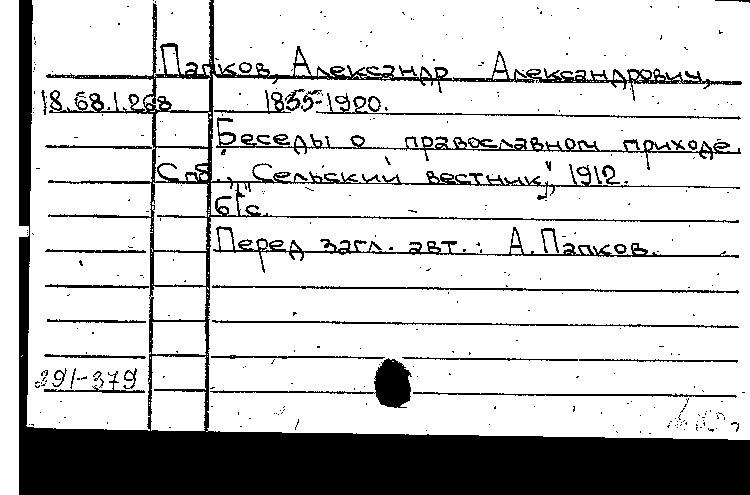 Папков, Александр Александрович,
18.68.1.268 1855-1900.
Беседы о православном приходе
Спб., "Сельский вестник", 1912.
61 с.
Перед загл. авт.: А. Папков.
291-379